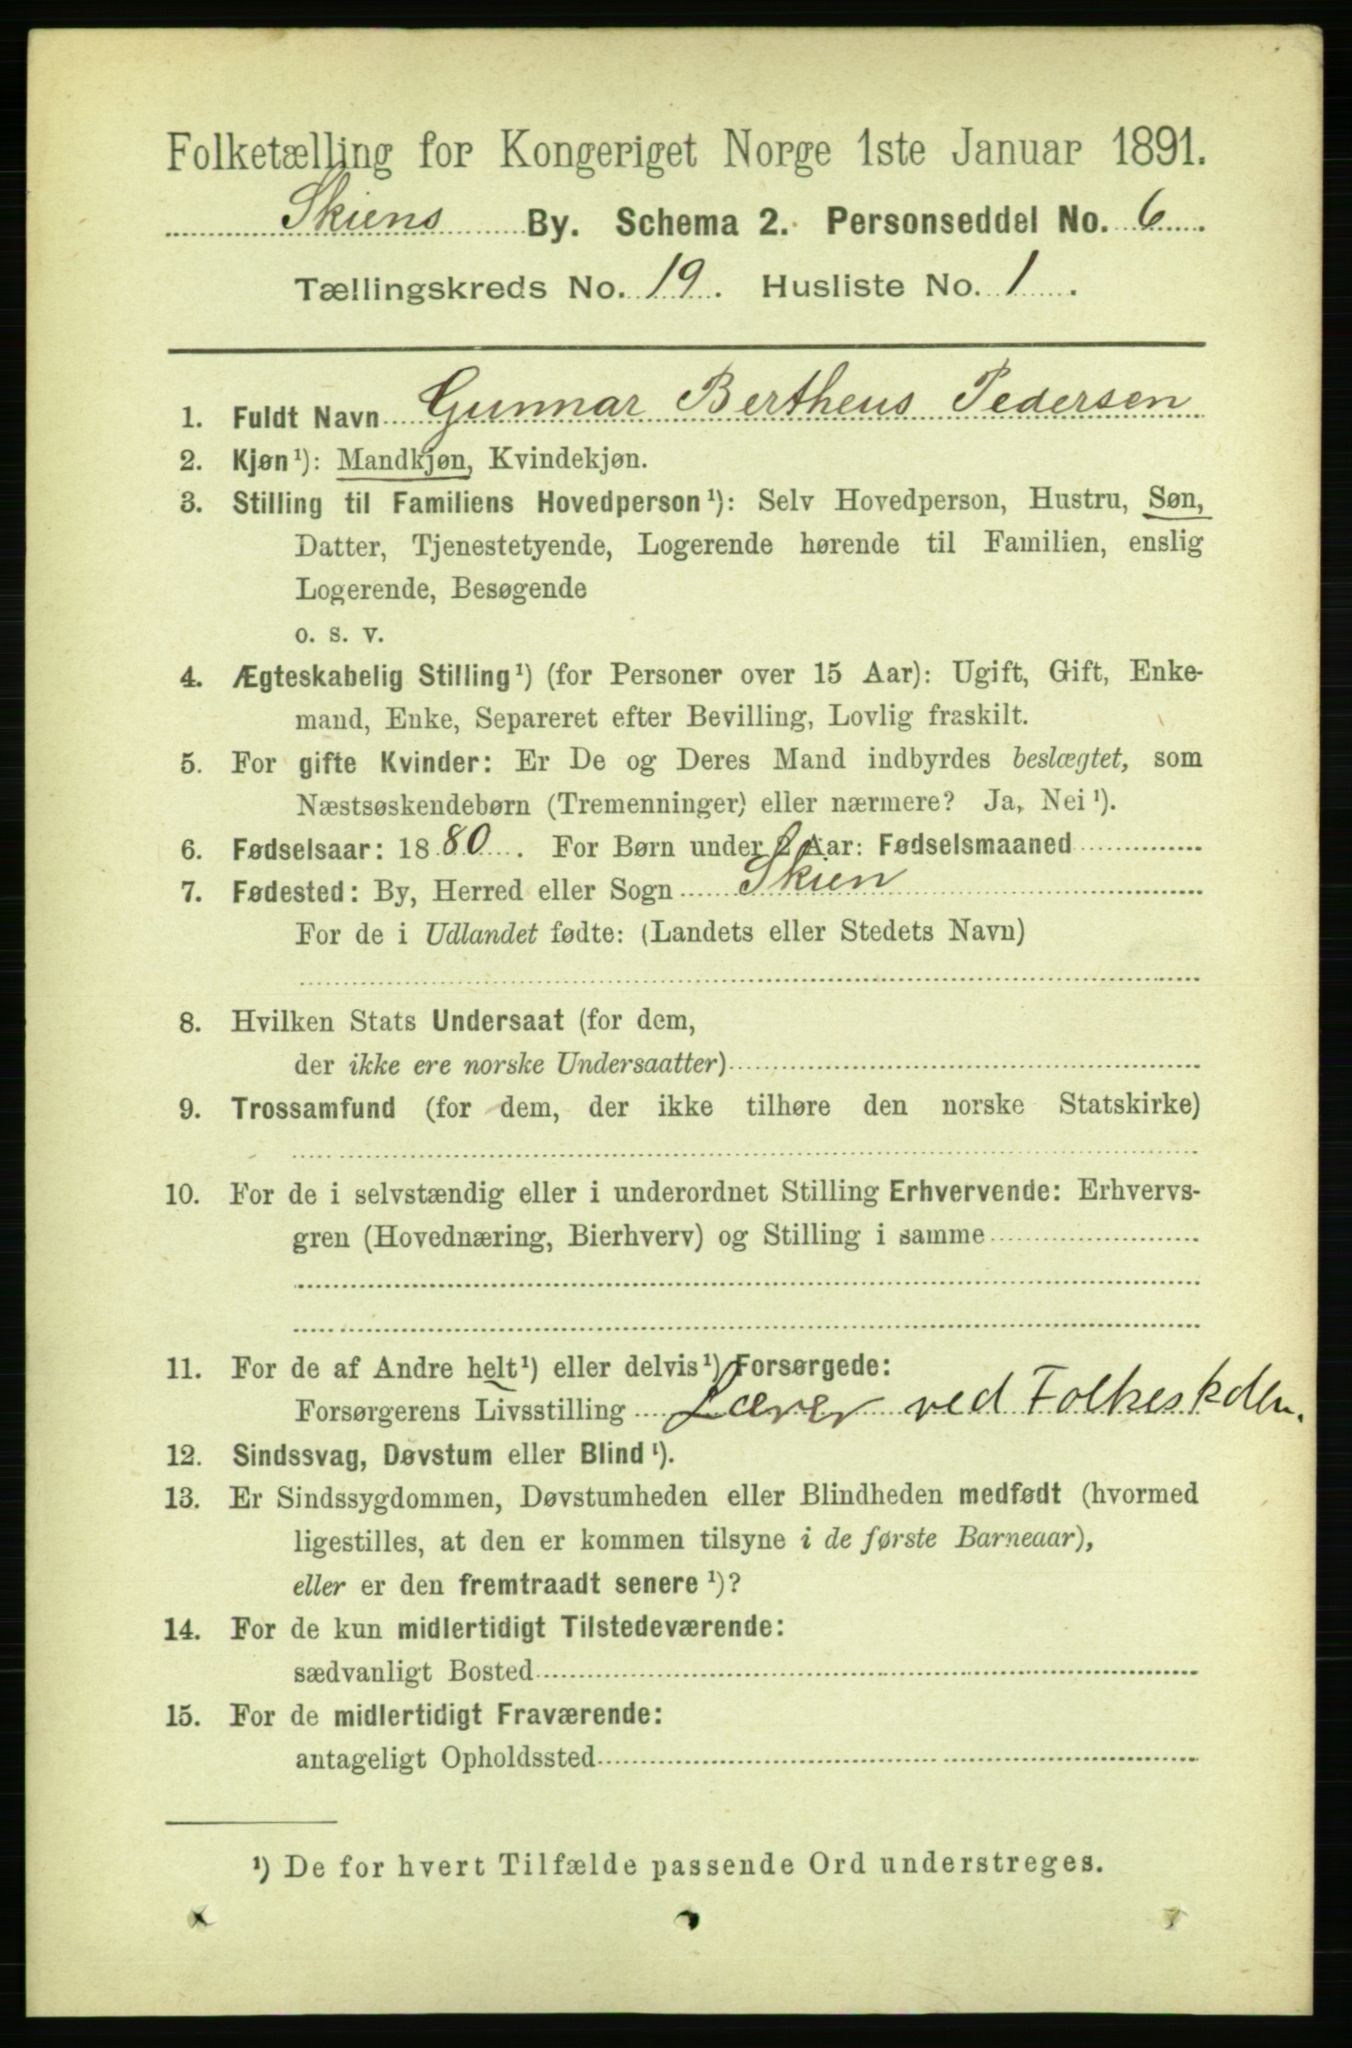 Folketælling for Kongeriget Norge 1ste Januar 1891.
Skiens By. Schema 2. Personseddel No. 6
Tællingskreds No. 19. Husliste No. 1.
1. Fuldt Navn Gunnar Bertheus Pedersen
2. Kjøn¹): Mandkjøn, Kvindekjøn.
3. Stilling til Familiens Hovedperson¹): Selv Hovedperson, Hustru, Søn,
Datter, Tjenestetyende, Logerende hørende til Familien, enslig
Logerende, Besøgende
o. s. v.
4. Ægteskabelig Stilling¹) (for Personer over 15 Aar): Ugift, Gift, Enke-
mand, Enke, Separeret efter Bevilling, Lovlig fraskilt.
5. For gifte Kvinder: Er De og Deres Mand indbyrdes beslægtet, som
Næstsøskendebørn (Tremenninger) eller nærmere? Ja, Nei¹).
6. Fødselsaar: 1880. For Børn under 2 Aar: Fødselsmaaned
7. Fødested: By, Herred eller Sogn Skien
For de i Udlandet fødte: (Landets eller Stedets Navn)
8. Hvilken Stats Undersaat (for dem,
der ikke ere norske Undersaatter)
9. Trossamfund (for dem, der ikke tilhøre den norske Statskirke)
10. For de i selvstændig eller i underordnet Stilling Erhvervende: Erhvervs-
gren (Hovednæring, Bierhverv) og Stilling i samme
11. For de af Andre helt¹) eller delvis¹) Forsørgede:
Forsørgerens Livsstilling Lærer ved Folkeskolen.
12. Sindssvag, Døvstum eller Blind¹).
13. Er Sindssygdommen, Døvstumheden eller Blindheden medfødt (hvormed
ligestilles, at den er kommen tilsyne i de første Barneaar),
eller er den fremtraadt senere¹)?
14. For de kun midlertidigt Tilstedeværende:
sædvanligt Bosted
15. For de midlertidigt Fraværende:
antageligt Opholdssted
¹) De for hvert Tilfælde passende Ord understreges.